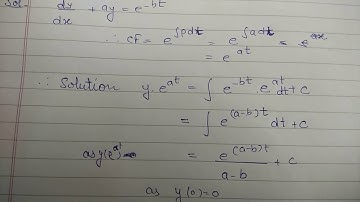 Sol- dy/dx + ay = e^-bt
∴ CF = e^∫pdt = e^∫adt = e^ax
= e^at
∴ Solution y.e^at = ∫ e^-bt e^at dt + C
= ∫ e^(a-b)t dt + C
as y(e^at) = e^(a-b)t/a-b + C
as y(0)=0